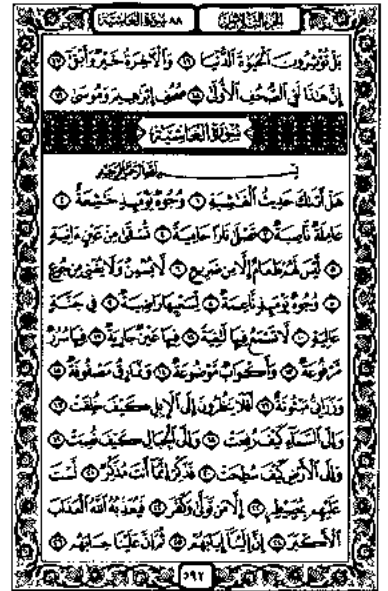 الجزء الثلاثون
٨٨ سورة الغاشية
بَلْ تُؤْثِرُونَ ٱلْحَيَوٰةَ ٱلدُّنْيَا ۝١٦ وَٱلْأَخِرَةُ خَيْرٌ وَأَبْقَىٰٓ ۝١٧
إِنَّ هَٰذَا لَفِى ٱلصُّحُفِ ٱلْأُولَىٰ ۝١٨ صُحُفِ إِبْرَٰهِيمَ وَمُوسَىٰ ۝١٩
سُورَةُ الغَاشِيَةِ
بِسْمِ ٱللَّهِ ٱلرَّحْمَٰنِ ٱلرَّحِيمِ
هَلْ أَتَىٰكَ حَدِيثُ ٱلْغَٰشِيَةِ ۝١ وُجُوهٌ يَوْمَئِذٍ خَٰشِعَةٌ ۝٢
عَامِلَةٌ نَّاصِبَةٌ ۝٣ تَصْلَىٰ نَارًا حَامِيَةً ۝٤ تُسْقَىٰ مِنْ عَيْنٍ ءَانِيَةٍ
۝٥ لَّيْسَ لَهُمْ طَعَامٌ إِلَّا مِن ضَرِيعٍ ۝٦ لَّا يُسْمِنُ وَلَا يُغْنِى مِن جُوعٍ
۝٧ وُجُوهٌ يَوْمَئِذٍ نَّاعِمَةٌ ۝٨ لِّسَعْيِهَا رَاضِيَةٌ ۝٩ فِى جَنَّةٍ
عَالِيَةٍ ۝١٠ لَّا تَسْمَعُ فِيهَا لَٰغِيَةً ۝١١ فِيهَا عَيْنٌ جَارِيَةٌ ۝١٢ فِيهَا سُرُرٌ
مَّرْفُوعَةٌ ۝١٣ وَأَكْوَابٌ مَّوْضُوعَةٌ ۝١٤ وَنَمَارِقُ مَصْفُوفَةٌ ۝١٥
وَزَرَابِىُّ مَبْثُوثَةٌ ۝١٦ أَفَلَا يَنظُرُونَ إِلَى ٱلْإِبِلِ كَيْفَ خُلِقَتْ ۝١٧
وَإِلَى ٱلسَّمَآءِ كَيْفَ رُفِعَتْ ۝١٨ وَإِلَى ٱلْجِبَالِ كَيْفَ نُصِبَتْ ۝١٩
وَإِلَى ٱلْأَرْضِ كَيْفَ سُطِحَتْ ۝٢٠ فَذَكِّرْ إِنَّمَآ أَنتَ مُذَكِّرٌ ۝٢١ لَّسْتَ
عَلَيْهِم بِمُصَيْطِرٍ ۝٢٢ إِلَّا مَن تَوَلَّىٰ وَكَفَرَ ۝٢٣ فَيُعَذِّبُهُ ٱللَّهُ ٱلْعَذَابَ
ٱلْأَكْبَرَ ۝٢٤ إِنَّ إِلَيْنَآ إِيَابَهُمْ ۝٢٥ ثُمَّ إِنَّ عَلَيْنَا حِسَابَهُم ۝٢٦
٥٩٢